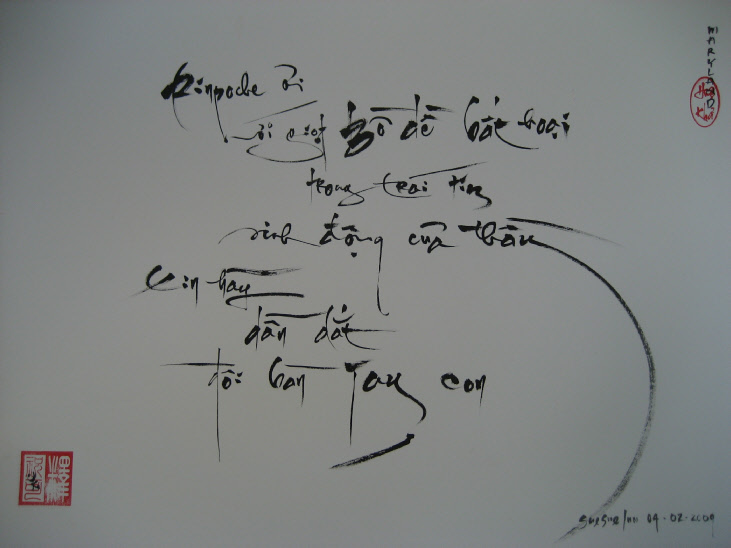 Rinpoche ơi
với giọt bồ đề bất hoại
trong trái tim
sinh động của thầy
xin hãy
dẫn dắt
đôi bàn tay con
MARYLAND
09.02.2009